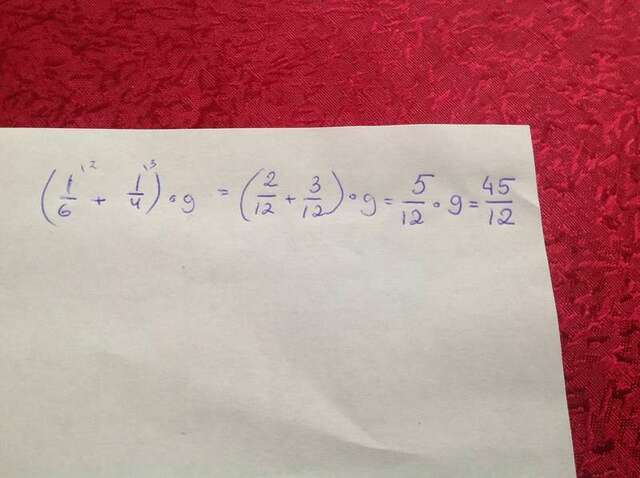 (1/6 ·2 + 1/4 ·3) • 9 = (2/12 + 3/12) • 9 = 5/12 • 9 = 45/12